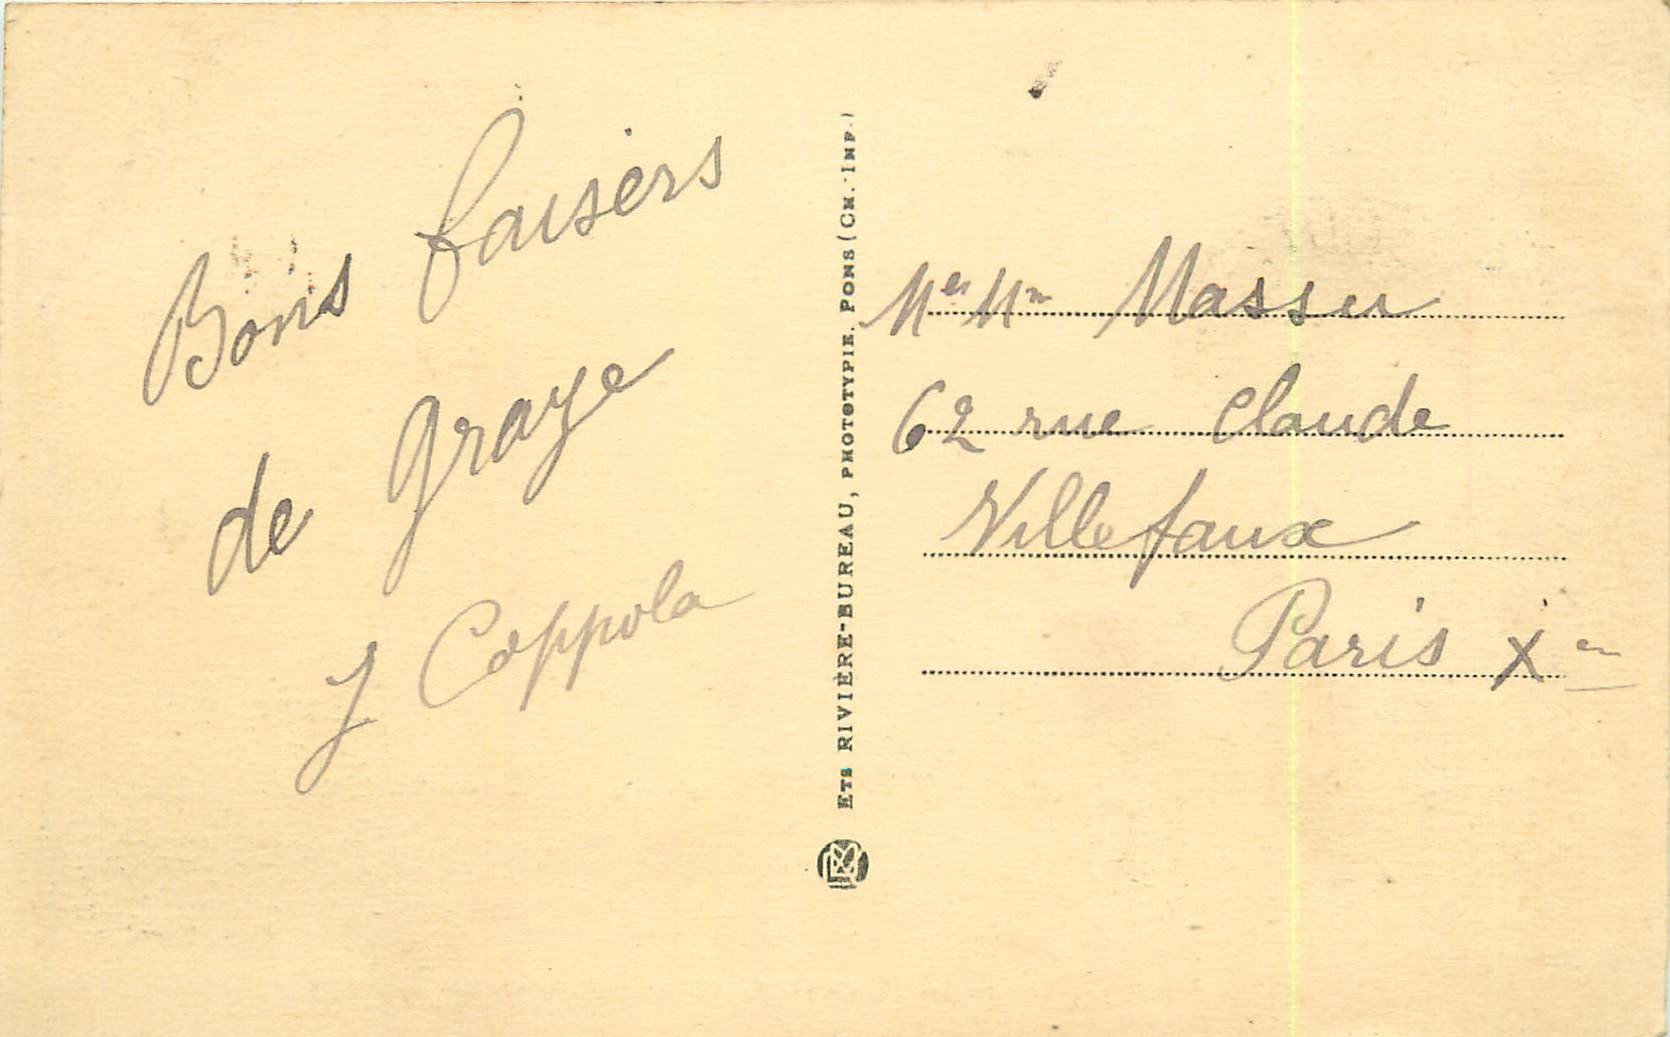 Bons baisers
de Graye
J Coppola
Ets RIVIÈRE-BUREAU, PHOTOTYPIE. PONS (CH.-INF.)
Mer Mm Masseu
62 rue Claude
Villefaux
Paris Xem